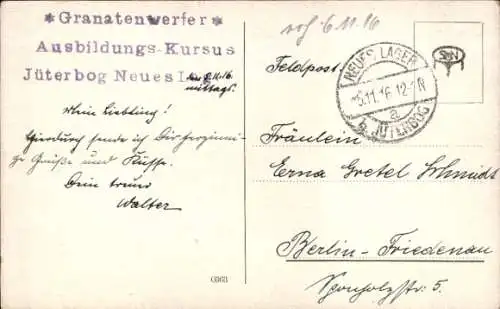 *Granatenwerfer*
Ausbildungs-Kursus
Jüterbog Neues Lag
5.11.16.
mittags.
Mein Liebling!
Hierdurch sende ich Dir herzinni-
ge Grüße und Küsse.
Dein treuer
Walter
6.11.16
Feldpost
NEUES LAGER
5.11.16.12-1N
a
b. JÜTERBOG
S&N
Fräulein
Erna Gretel Schmidt
Berlin-Friedenau
Sponholzstr: 5.